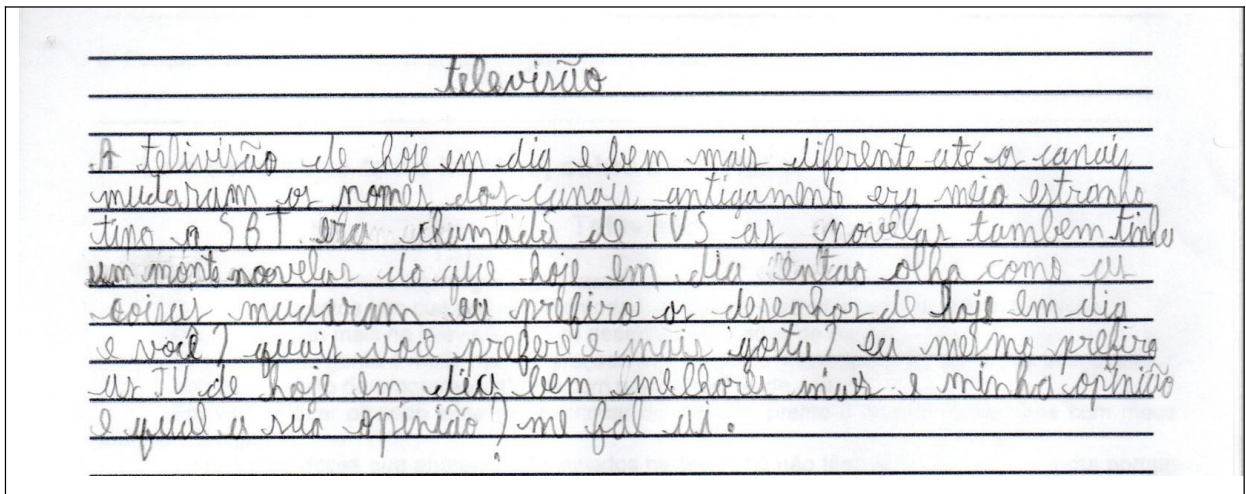 televisão
A telivisão de hoje em dia e bem mais diferente até os canais
mudaram os nomes dos canais antigamente era meio estranho
tipo o SBT era chamada de TVS as novelas tambem tinha
um monte noovelas do que hoje em dia entao olha como as
coisas mudaram eu prefiro os desenhos de hoje em dia
e você? quais você prefere e mais gosta? eu mesmo prefiro
as TV de hoje em dia bem melhores mas e minha opinião
e qual a sua opinião? me fal ai.